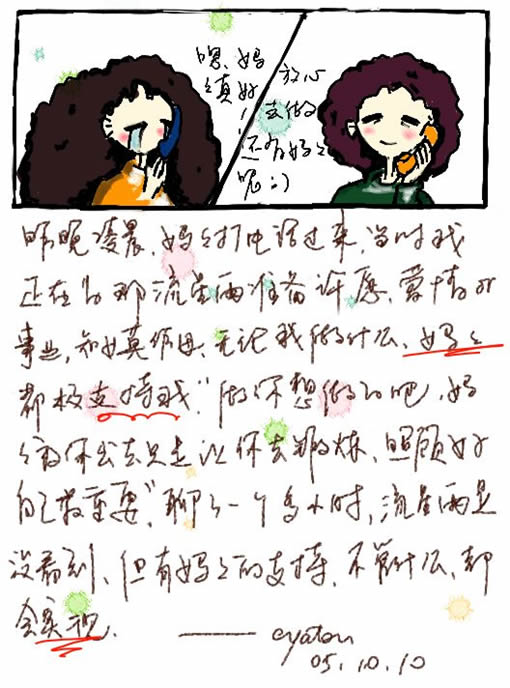 嗯、妈
々真好
！
放心
去做
还有妈々
呢:)
昨晚凌晨、妈々打电话过来,当时我
正在为那流星雨准备许愿、爱情or
事业,知女莫作母、无论我做什么、妈々
都极支持我:"做你想做的吧,妈
々高你出去只是让你去锻炼、照顾好
自己最重要"聊了一个多小时,流星雨是
没看到、但有妈々的支持、不管什么、都
会实现、
—— eyaton
05.10.10